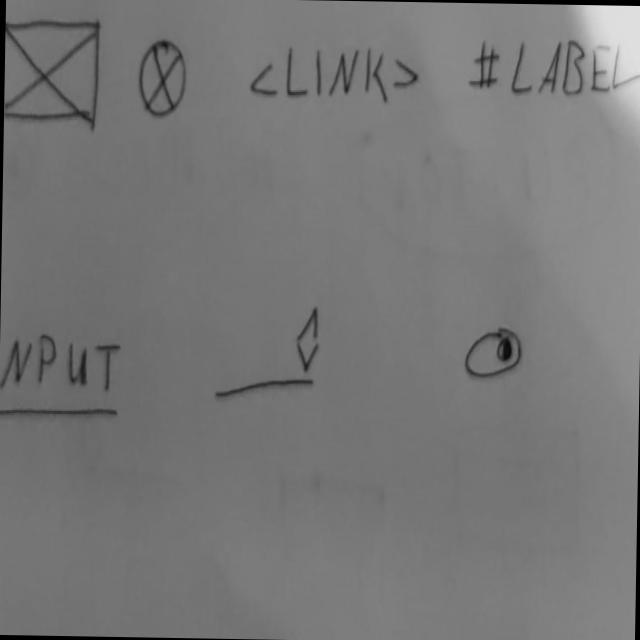 <LINK> #LABEL
NPUT